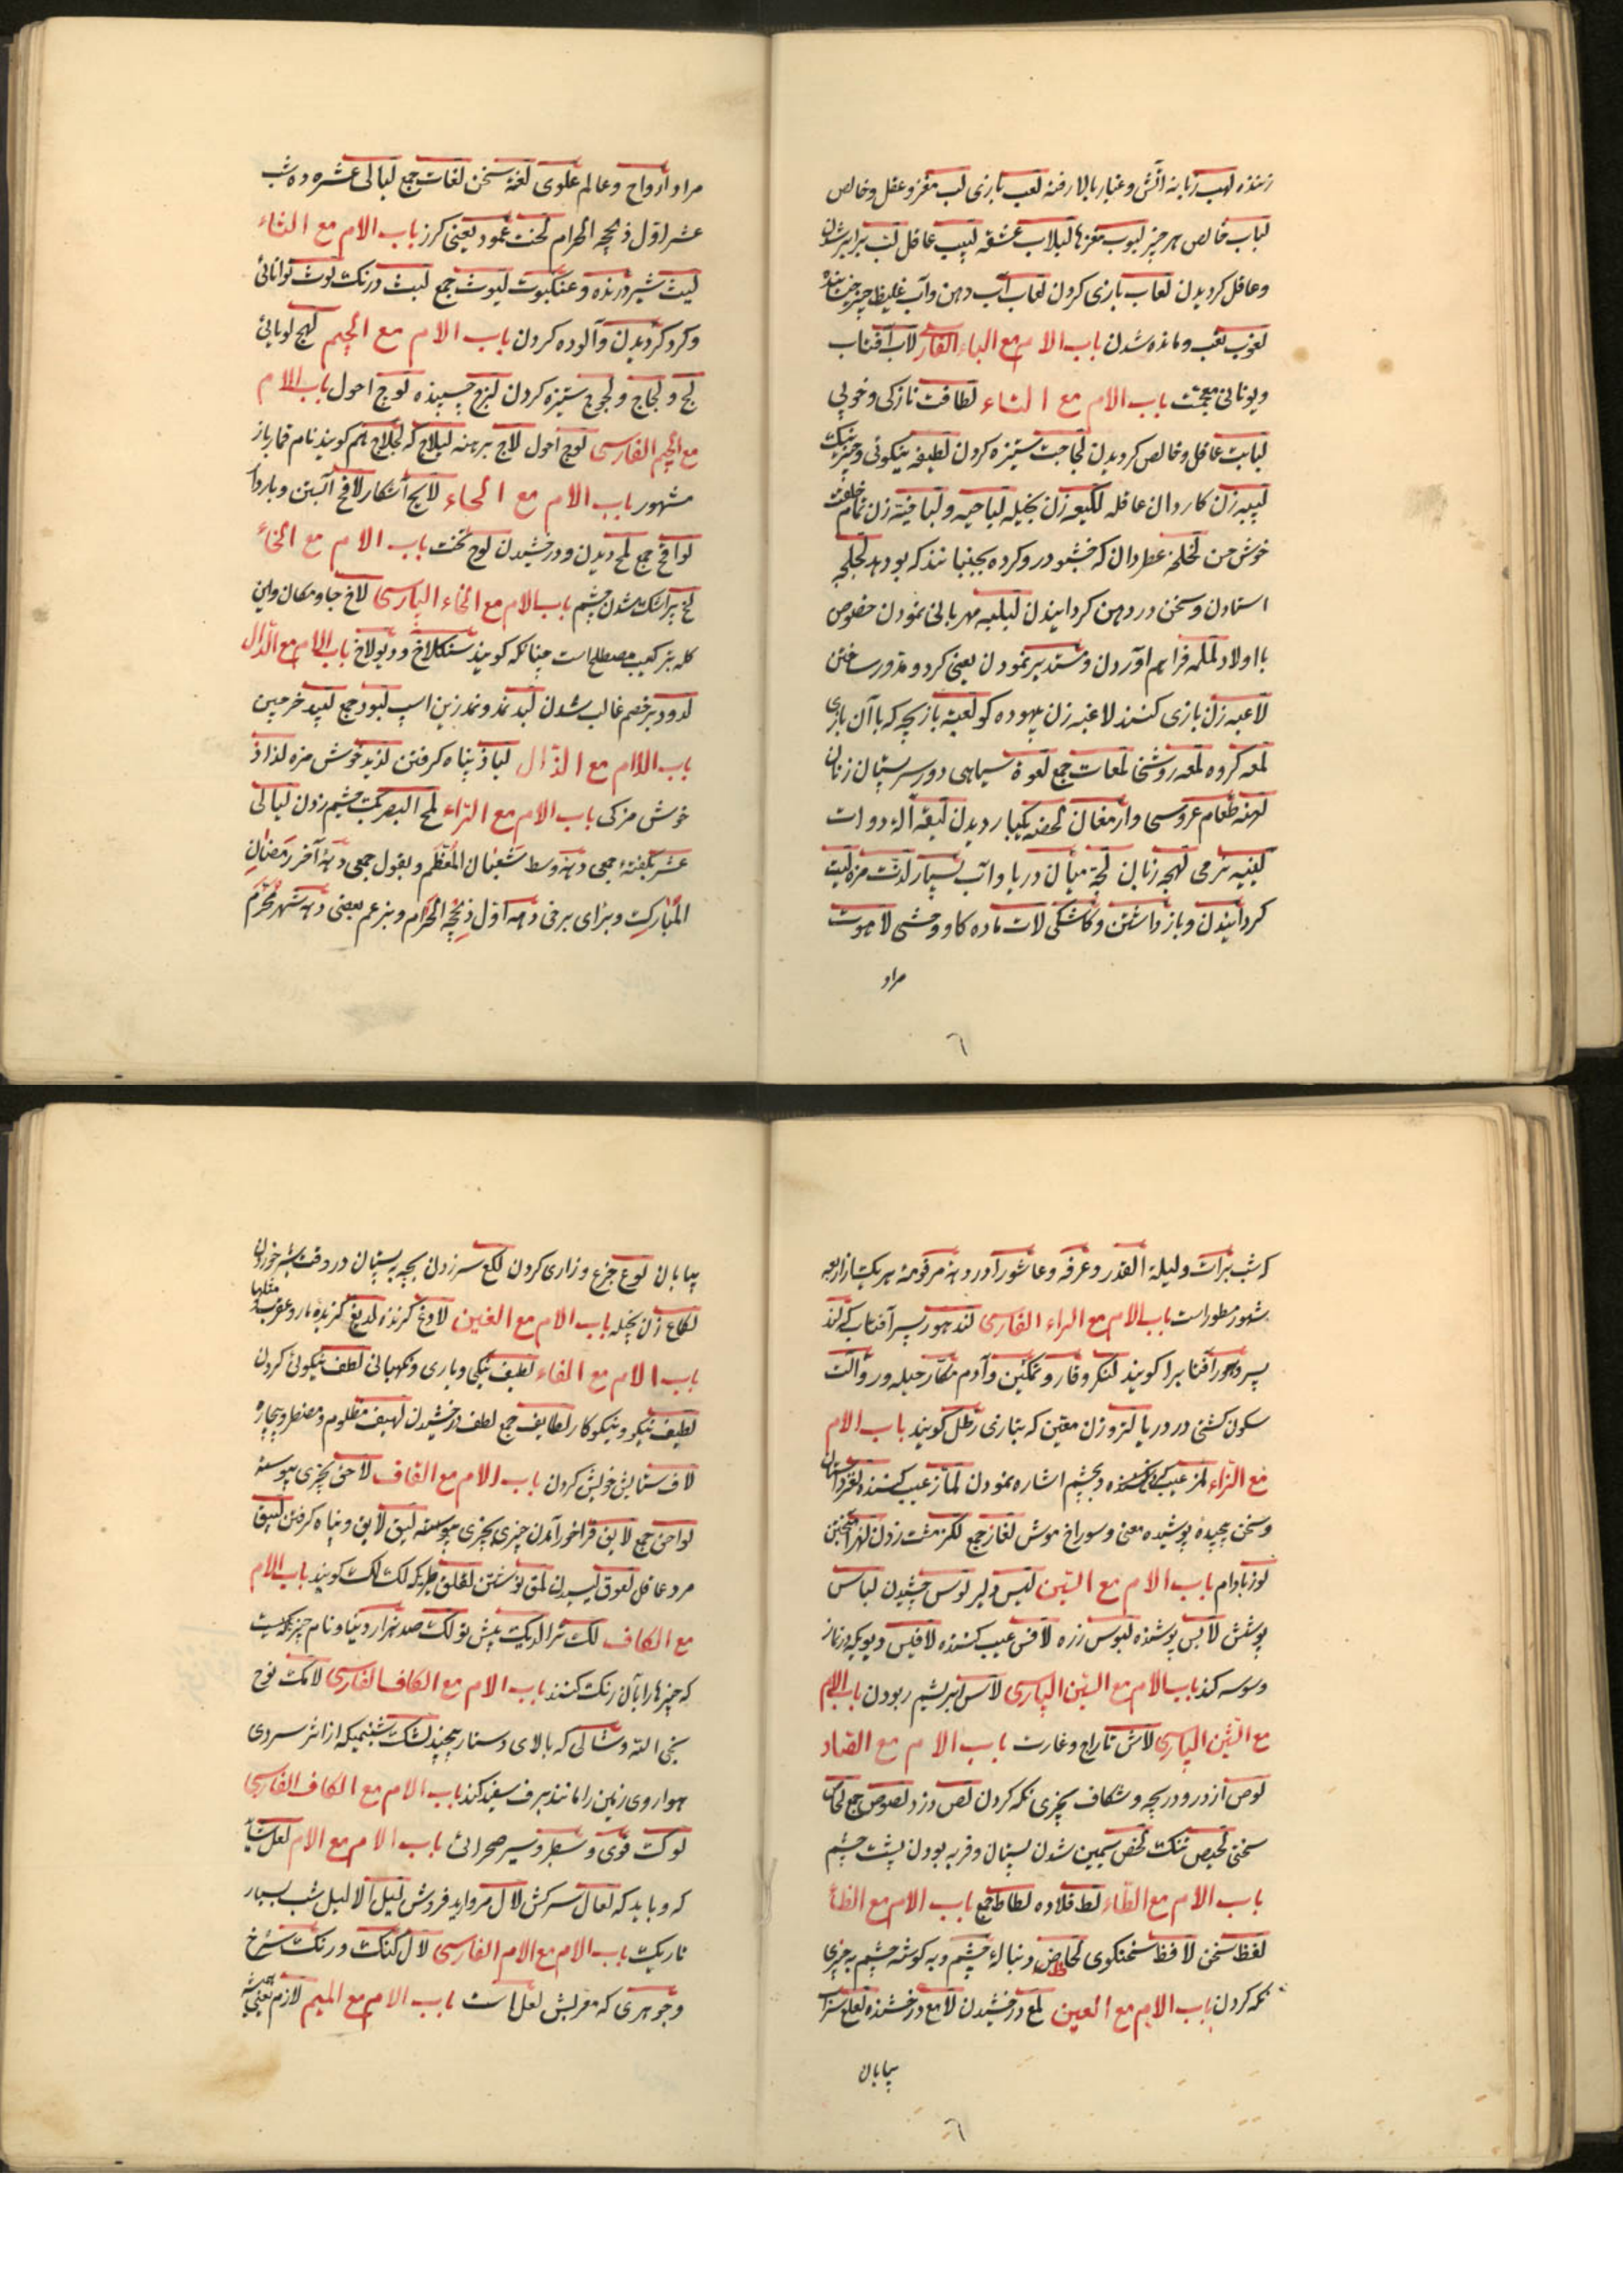 زننده لهب زبانه آتش و غبار بالا رفته لعب بازی لب مغز و عقل و خالص
لباب خالص هر چیز لبوب مغزها لبلاب عشقه لبیب عاقل لبب برابر شدن
و عاقل کردیدن لعاب بازی کردن لعاب آب دهن و آب غلیظ چیز
لغوب تعب و مانده شدن باب الام مع الباء الفارسی لاب آفتاب
و یونانی باب الام مع التاء لطافت نازکی و خوبی
لبابت عاقل و خالص کردیدن لجاجت ستیزه کردن لطیفه نیکوئی و چیز نیک
لبیبه زن کاردان عاقله لکیعه زن بخیله لباحیه و لباخیته زن تمام خلقت
خوش حسن لخلخه عطردان که خشبو در و کرده بجنبانند که بو دهد لجلجه
استادن و سخن در دهن کردانیدن لبلبه مهربانی نمودن خصوص
با اولاد لملمه فراهم آوردن و مستدیر نمودن یعنی کرد و مدور ساختن
لاعبه زن بازی کننده لاغیه زن بیهوده کو لعبة بازیچه که با آن بازی
لمه کروه لمعه روشنی لمعات جمع لعوة سیاهی دور سر پستان زنان
لهنه طعام عروسی و ارمغان لحضه یکبار دیدن لیقه آلهٔ دوات
لینیه نرمی لهجه زبان لجة میان دریا و آب بسیار لذت مزه لیت
کردانیدن و باز داشتن و کاشکی لات ماده کاو وحشی لاهوت
مراد
مراد ارواح و عالم علوی لغة سخن لغات جمع لیالی عشره ده شب
عشر اول ذیحجه الحرام لخت عمود یعنی کرز باب الام مع الثاء
لیث شیر درنده و عنکبوت لیوث جمع لبث درنک لوث توانائی
و کرد کردیدن و آلوده کردن باب الام مع الجیم لهج لوبائی
لج و لجاج و لجوج ستیزه کردن لزج چسبنده لوج احول باب الام
مع الجیم الفارسی لوچ احول لاچ برهنه لیلاج که لجلاج هم کویند نام قمارباز
مشهور باب الام مع الحاء لایح آشکار لاقح آبستن و باردار
لواقح جمع لمح دیدن و درخشیدن لوح تخت باب الام مع الخاء
لخ پر اشک شدن چشم باب الام مع الخاء الپارسی لاخ جا و مکان و این
کلمه بترکیب مصطلح است چنانکه کویند سنکلاخ و دیولاخ باب الام مع الدال
لدود بر خصم غالب شدن لبد نمد و نمدزین اسپ لبود جمع لبید خرجین
باب الام مع الذال لباذ پناه کرفتن لذیذ خوش مزه لذاذ
خوش مزکی باب الام مع الراء لمح البصر یکبت چشم زدن لیالی
عشر بکفتهٔ جمعی دههٔ وسط شعبان المعظم و بقول جمعی دههٔ آخر رمضان
المبارک و برای برخی دههٔ اول ذیحجه الحرام و بزعم بعضی دههٔ شهر محرم
که شب برات و لیلة القدر و عرفه و عاشورا در دههٔ مرقومه هر یک از اربعه
شهور مسطور است باب الام مع الراء الفارسی لندهور پسر آفتاب که لند
پسر و هور آفتاب را کویند لنکر وقار و تمکین و آدم مکار حیله ور و آلت
سکون کشتی در دریا لتر وزن معین که بتازی رطل کویند باب الام
مع الزاء لمز عیب کردن و بچشم اشاره نمودن لماز عیب کننده لغز چیستان
و سخن پیچیده پوشیده معنی و سوراخ موش لغاز جمع لکز مشت زدن لهز آمیختن
لوز بادام باب الام مع السین لیس دلیر لوس چشیدن لباس
پوشش لابس پوشنده لبوس زره لاقس عیب کننده لاقیس دیویکه در نماز
وسوسه کند باب الام مع السین الپارسی لاس ابریشم ربودن باب الام
مع الشین الپارسی لاش تاراج و غارت باب الام مع الصاد
لوص از در و دریچه و شکاف بچیزی نکه کردن لص دزد لصوص جمع لحاص
سختی لحیص تنک لخص سیمین شدن پستان و فربه بودن پشت چشم
باب الام مع الطاء لط قلاده لطاط جمع باب الام مع الظاء
لفظ سخن لافظ سخنکوی لحاظ دنبالهٔ چشم و به کوشه چشم به چیزی
نکه کردن باب الام مع العین لمع درخشیدن لامع درخشنده لعلع سراب
بیابان
بیابان لوع جزع و زاری کردن لکع سر زدن بچه به پستان در وقت شیر خوردن
لکاع زن بخیله باب الام مع الغین لادغ کزنده لدیغ کزیدهٔ مار و عقرب مثلها
باب الام مع الفاء لطیف نیکی و یاری و نکهبانی لطف نیکوئی کردن
لطیف نیکو و نیکوکار لطایف جمع لطف درخشیدن لهیف مظلوم و مضطر و بیچاره
لاف ستایش خویش کردن باب الام مع القاف لاحق بچیزی پیوسته
لواحق جمع لایق فراخور آمدن چیزی بچیزی پیوسته لیق لایق و پناه کرفتن لبیق
مرد عاقل لعوق لیسیدن لمق نوشتن لقلق طیریکه لک لک کویند باب الام
مع الکاف لک ترا لدیک پیش تو لک صد هزار دنیا و نام چیزیکه هست
که چیزها را با آن رنک کنند باب الام مع الکاف الفارسی لامک نوح
نجی الله و شالی که بالای دستار پیچند لشک شبنمیکه از اثر سردی
هوا روی زمین را مانند برف سفید کند باب الام مع الکاف الفارسی
لوک قوی و سطبر و سیر صحرائی باب الام مع الام لعل شاید
که و باید که لعال سرکش لال مروارید فروش لیل الالیل شب بسیار
تاریک باب الام مع الام الفارسی لال کنک و رنک سرخ
و جوهری که معربش لعل است باب الام مع المیم لازم یعنی همیشه